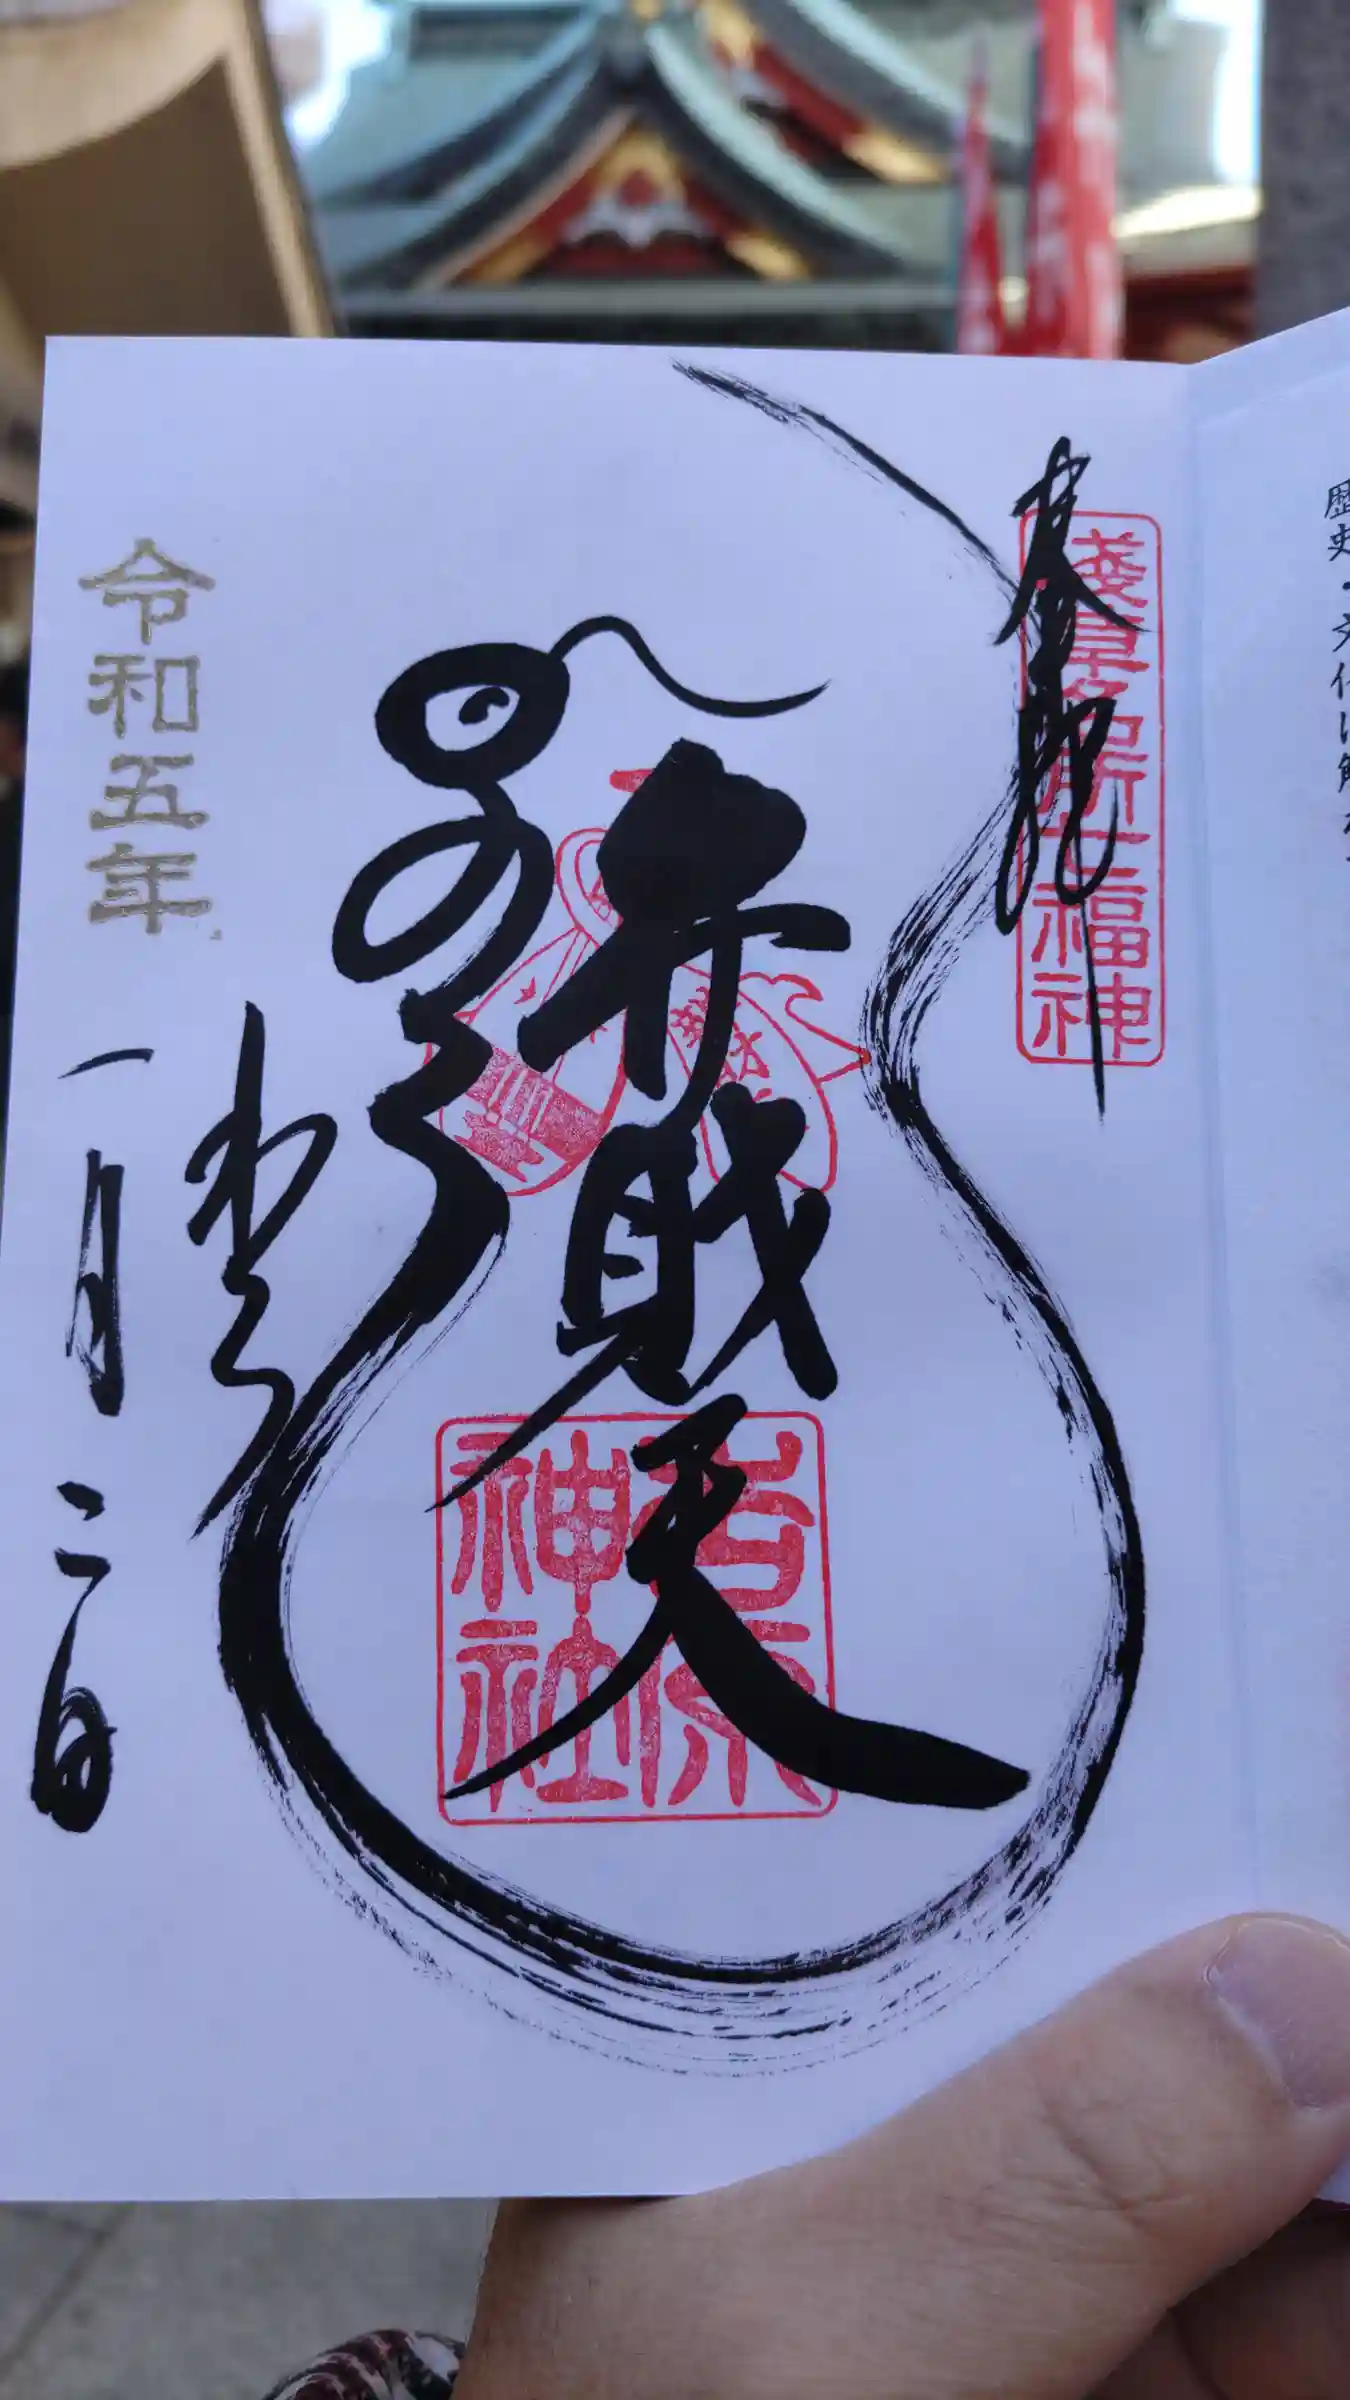 奉拝
淺草名所七福神
弁財天
吉原
神社
令和五年
一月二日
歴史・文化に